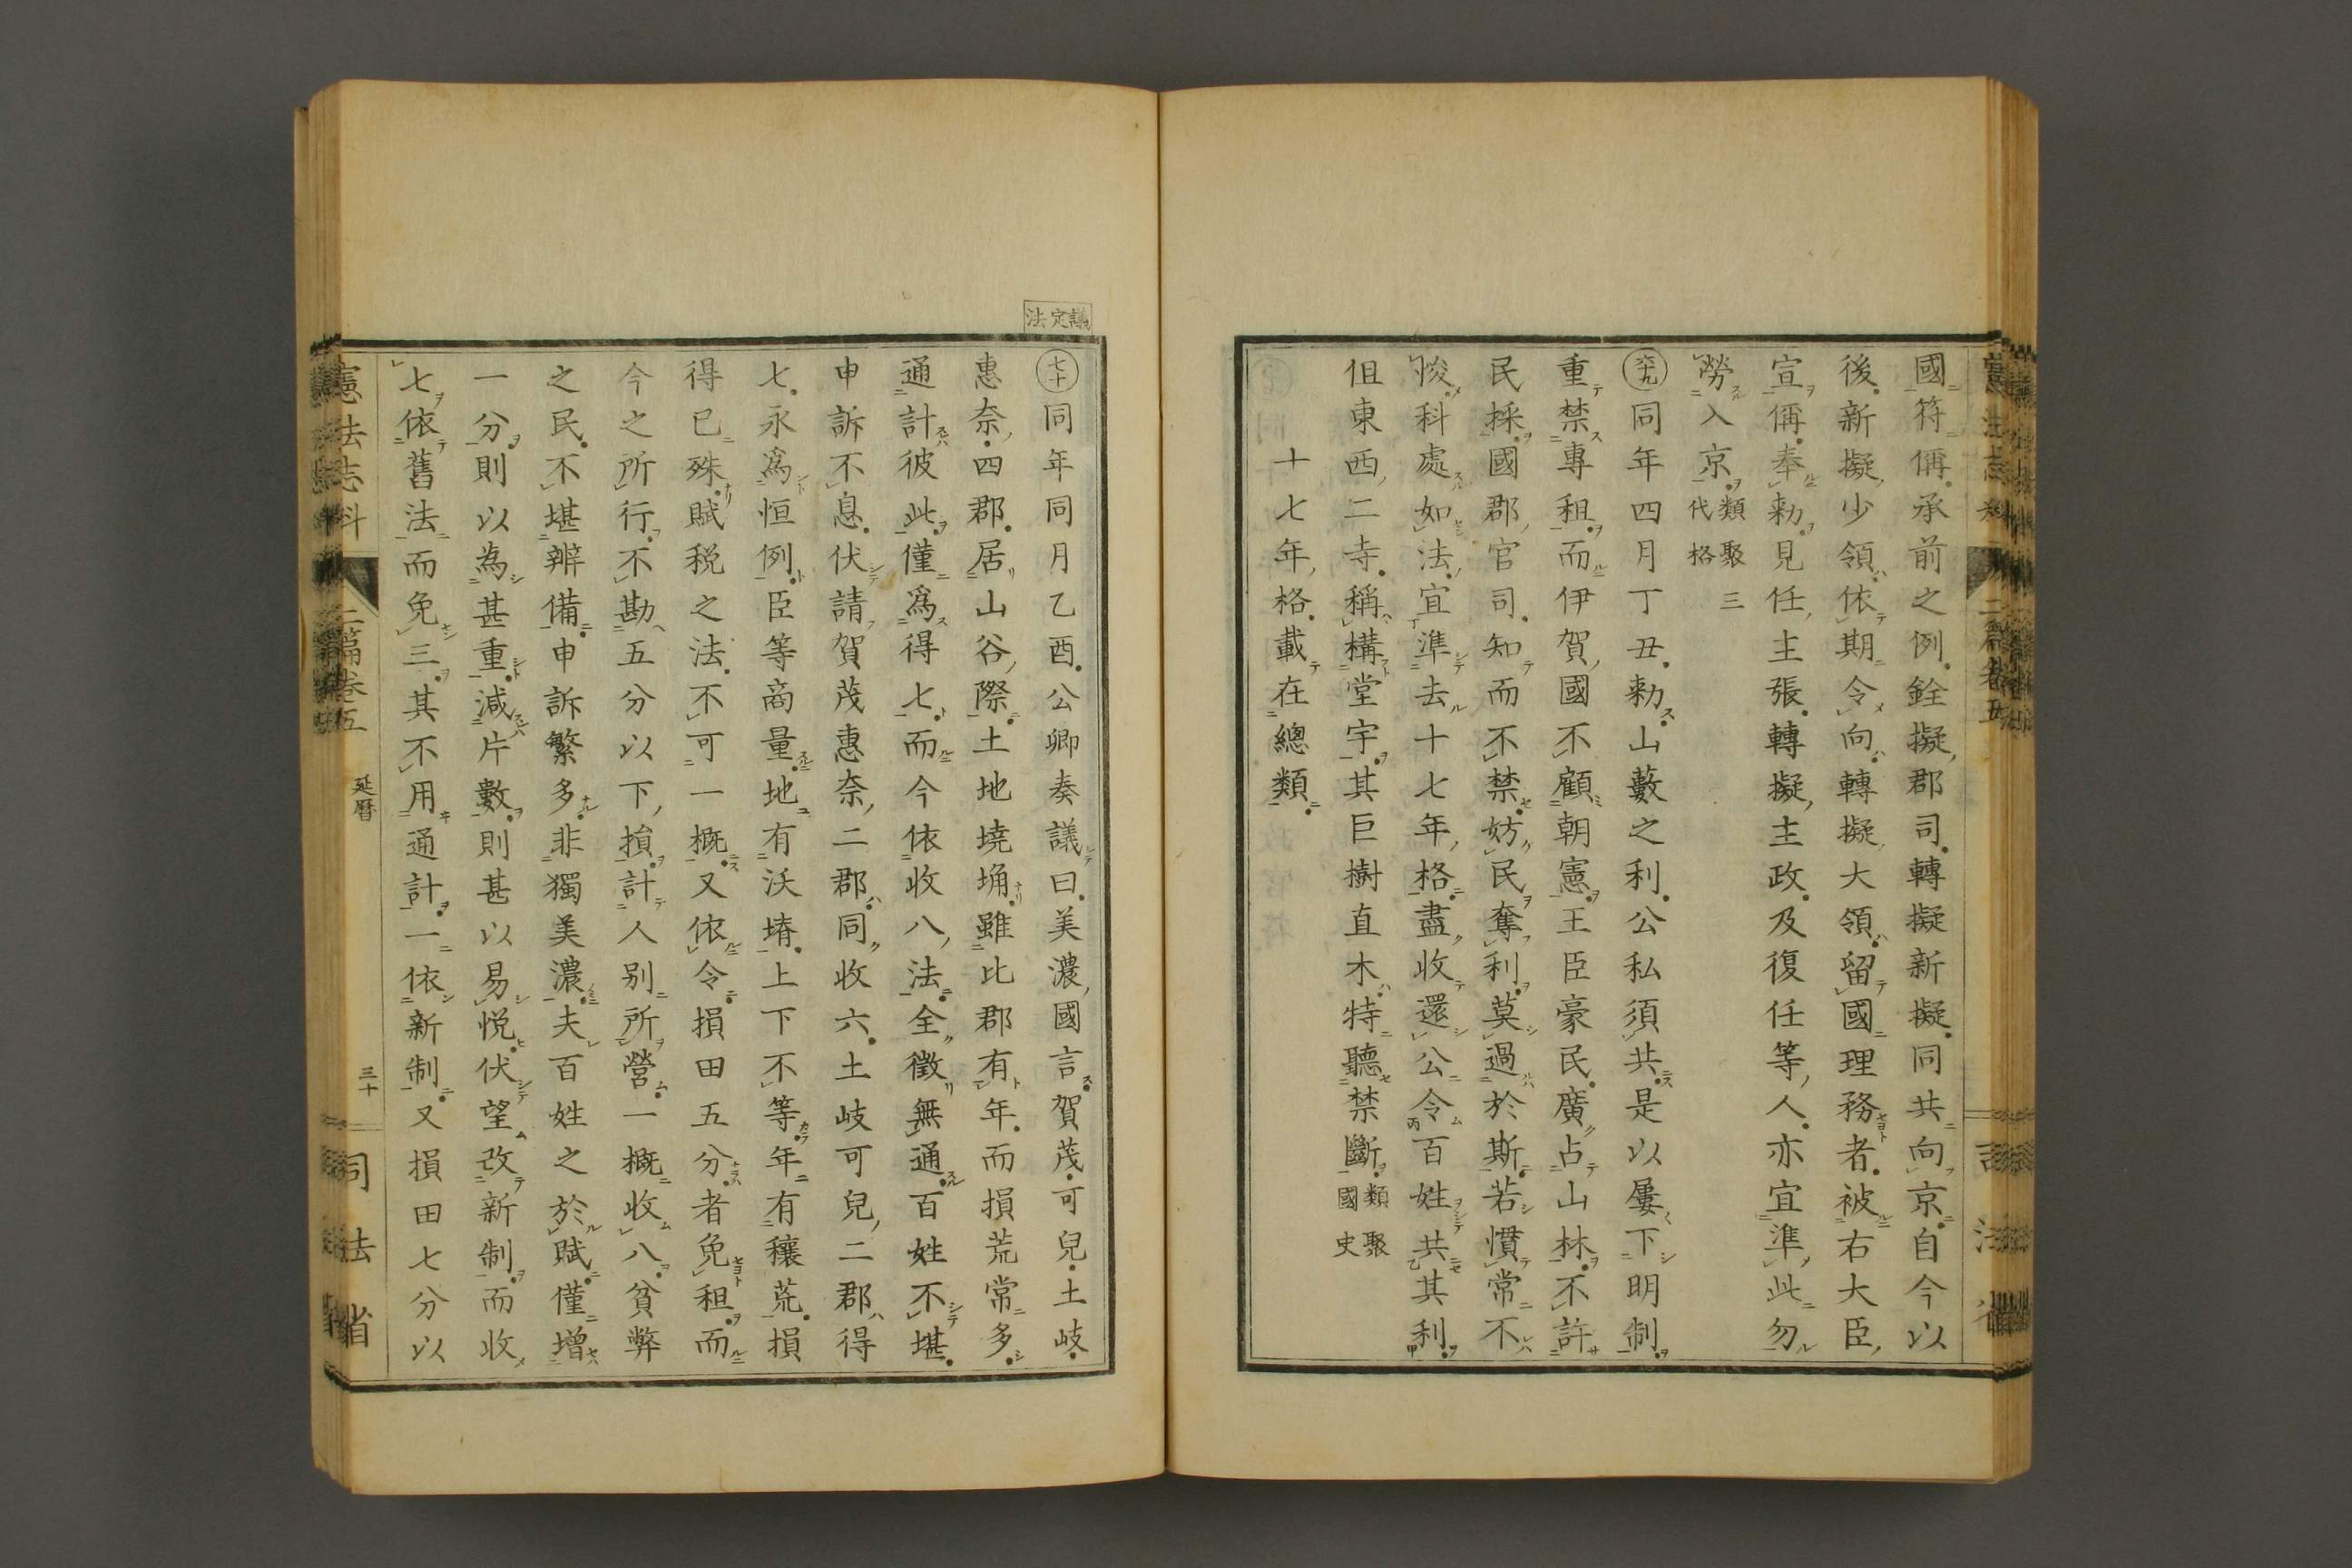 國符偁。承前之例。銓擬郡司。轉擬新擬。同共向京。自今以
後。新擬少領。依期令向。轉擬大領。留國理務者。被右大臣
宣偁。奉勅。見任主張。轉擬主政。及復任等人。亦宜準此。勿
勞入京。類聚三代格
六十九 同年四月丁丑。勅。山藪之利。公私須共。是以屢下明制。
重禁專租。而伊賀國不顧朝憲。王臣豪民。廣占山林。不許
民採。國郡官司。知而不禁。妨民奪利。莫過於斯。若慣常不
悛。科處如法。宜準去十七年格。盡收還公。令百姓共其利。
但東西二寺。稱構堂宇。其巨樹直木。特聽禁斷。類聚國史
十七年格。載在總類。
憲法志料 二篇卷五
司法省
議定法
七十 同年同月乙酉。公卿奏議曰。美濃國言。賀茂・可兒・土岐・
惠奈・四郡。居山谷際。土地墝埆。雖比郡有年。而損荒常多。
通計彼此。僅爲得七。而今依收八法。全徵無通。百姓不堪。
申訴不息。伏請賀茂惠奈二郡。同收六。土岐可兒二郡。得
七。永爲恒例。臣等商量。地有沃塉。上下不等。年有穰荒。損
得已殊。賦税之法。不可一概。又依令。損田五分者免租。而
今之所行。不勘五分以下。損計人別所營。一概收八。貧弊
之民。不堪辨備。申訴繁多。非獨美濃。夫百姓之於賦。僅增
一分。則以為甚重。減片數。則甚以易悦。伏望改新制。而收
七。依舊法而免三。其不用通計。一依新制。又損田七分以
憲法志料 二篇卷五 延暦 三十
司法省